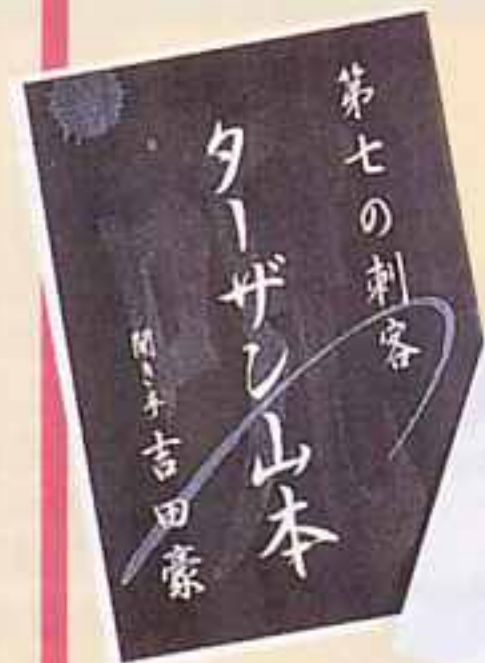 第七の刺客
ターザン山本
聞き手 吉田豪